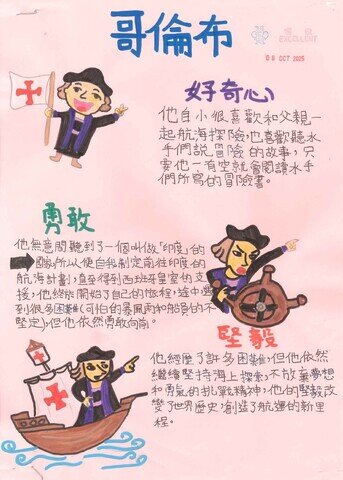 哥倫布
優良
EXCELLENT
08 OCT 2025
好奇心
他自小很喜歡和父親一
起航海探險,也喜歡聽水
手們說冒險的故事,只
要他一有空就會閱讀水手
們所寫的冒險書。
勇敢
他無意間聽到了一個叫做「印度」的
國家所以便自我制定前往印度的
航海計劃,直至得到西班牙皇室的支
援,他終能開始了自己的旅程,途中遇
到很多困難(可怕的暴風雨和船員的不
堅定),但他依然勇敢向前。
堅毅
他經歷了許多困難,但他依然
繼續堅持海上探索,不放棄夢想
和勇氣的挑戰精神,他的堅毅改
變了世界歷史,創造了航運的新里
程。